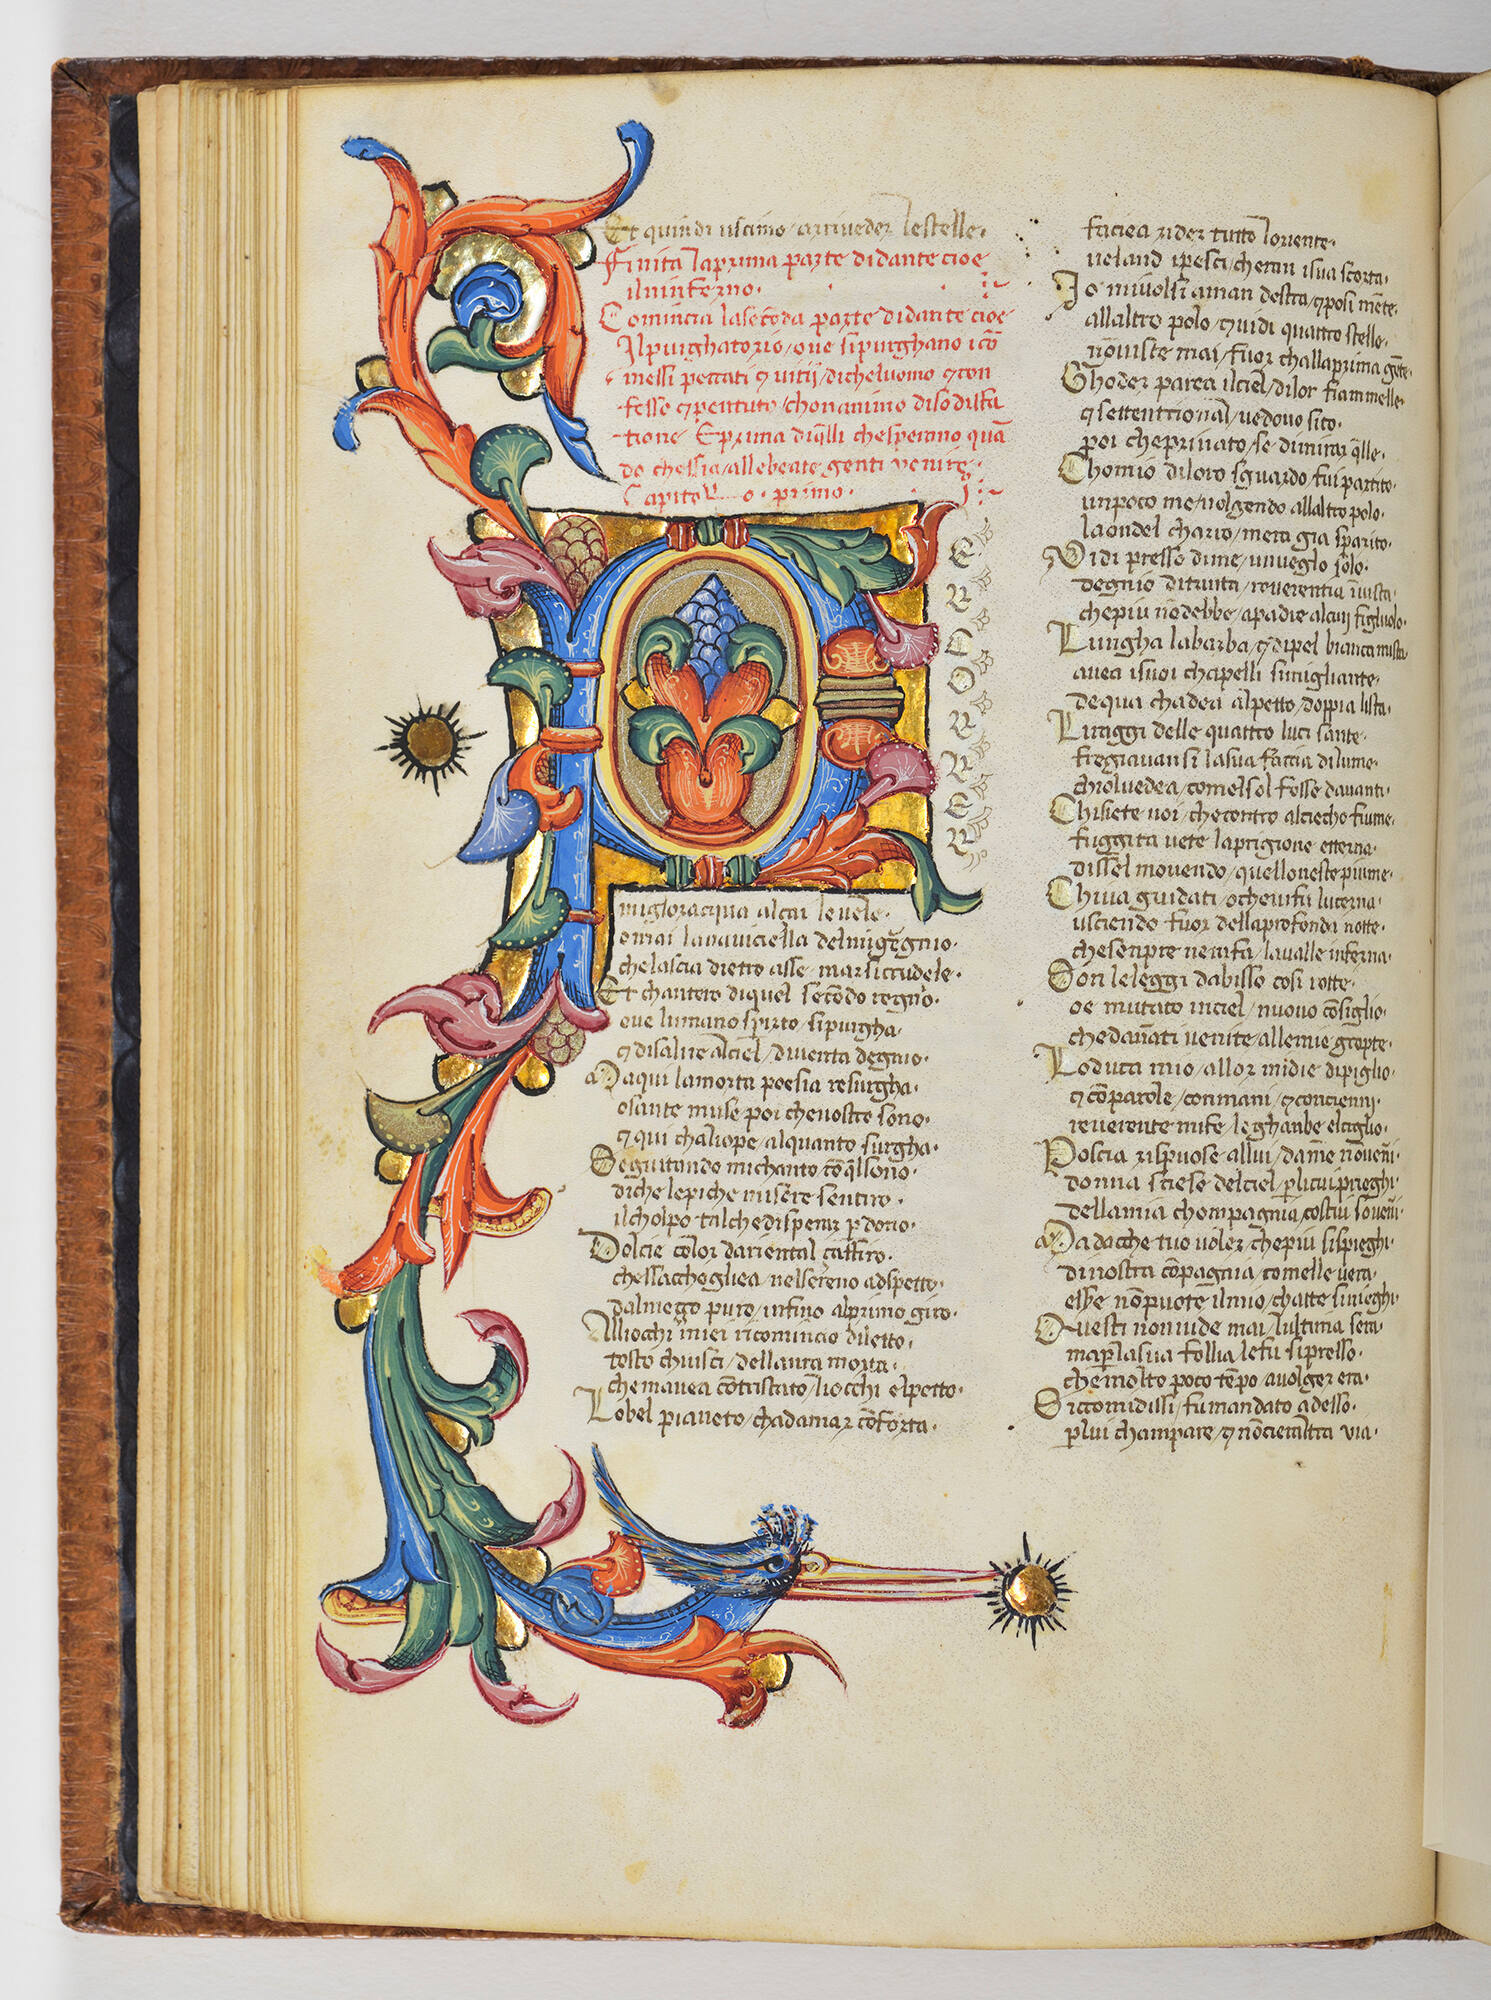 Et quindi uscimo / arriueder lestelle·
Finita laprima parte didante cioe
ilninferno·
Comincia laseconda parte didante cioe
Ilpurghatorio / oue sipurghano i cō
messi peccati ⁊ uitij / dicheluomo ⁊ con
fesso ⁊ pentuto / chonanimo disodisfa
tione E prima diq̄lli chesperano quā
do chessia / allebeate genti uenire·
Capitolo · primo·
P
E
R
C
O
R
R
E
R
miglor acqua alcai leuele·
omai lanauiciella delmīgēgnio·
chelascia dietro asse mar sicrudele·
Et chantero diquel secōdo regnio·
oue lumano spirto / sipurgha·
⁊ disalire alciel / diuenta degnio·
Ma qui lamorta poesia resurgha·
osante muse poi cheuostro sono·
⁊ qui chaliope / alquanto surgha·
Seguitando michanto cō q̄lsono·
diche lepiche misere sentiro·
ilcholpo talche disperar pdono·
Dolcie color dariental zaffiro·
chessaccheglica / nelsereno adspetto·
dalmezo puro / infino alprimo giro·
Alliocchi miei ricomincio diletto·
tosto chiusci / dellaura morta·
chemauea cōtristato / liocchi elpetto·
Lobel pianeto / chadamar cōforta·
faciea rider tutto loriente·
ueland ipesci / cheran isua scorta·
Io miuolsi aman destra / ⁊ posi mēte·
allaltro polo / ⁊ uidi quattro stelle·
nōuiste mai / fuor challaprima gēte·
Ghoder parea ilciel / dilor fiammelle·
⁊ settentrional / uedouo sito·
poi cheprinato / se dimirar q̄lle·
Chomio diloro sguardo / fui partito·
unpoco me / uolgendo allaltro polo·
laondel charro / mera gia sparito·
Vidi presso dime / unueglio solo·
degnio ditanta / reuerentia īuista·
chepiu nōdebbe / apadre alcuij figliuolo·
Lungha labarba / ⁊ dipel bianco mista
auea isuoi chapelli simigliante·
dequa chadea alpetto / doppia lista·
Liraggi delle quattro luci sante·
fregiauansi lasua faccia dilume·
chioluedea / comelsol fosse dauanti·
Chisiete uoi / checontro alciecho fiume·
fuggita uete laprigione etterna·
dissel mouendo / quelloneste piume·
Chiua guidati / ocheuifu lucerna·
usciendo fuor dellaprofonda notte·
chesenpre nerifa / laualle inferna·
Son leleggi dabisso cosi rotte·
oe mutato inciel / nuouo cōsiglio·
chedānati uenite / allemie groppte·
Loduca mio / allor midie dipiglio·
⁊ cō parole / conmani / ⁊ conciennj·
reuerente mife / leghanbe elciglio·
Poscia rispuose allui / dame nōuenni·
donna sciese delciel / plicui prieghi·
dellamia chompagnia / costui souenni·
Ma dacche tuo uoler / chepiu sispieghi·
dinostra cōpagnia / comelle uera·
esse nōpuote ilmio / chatte sinieghi·
Questi nonuide mai / lultima sera·
maplasua follia lefu sipresso·
chemolto poco tēpo auolger era·
Siccomidissi / fu mandato adesso·
plui champare / ⁊ nōcieraltra via·